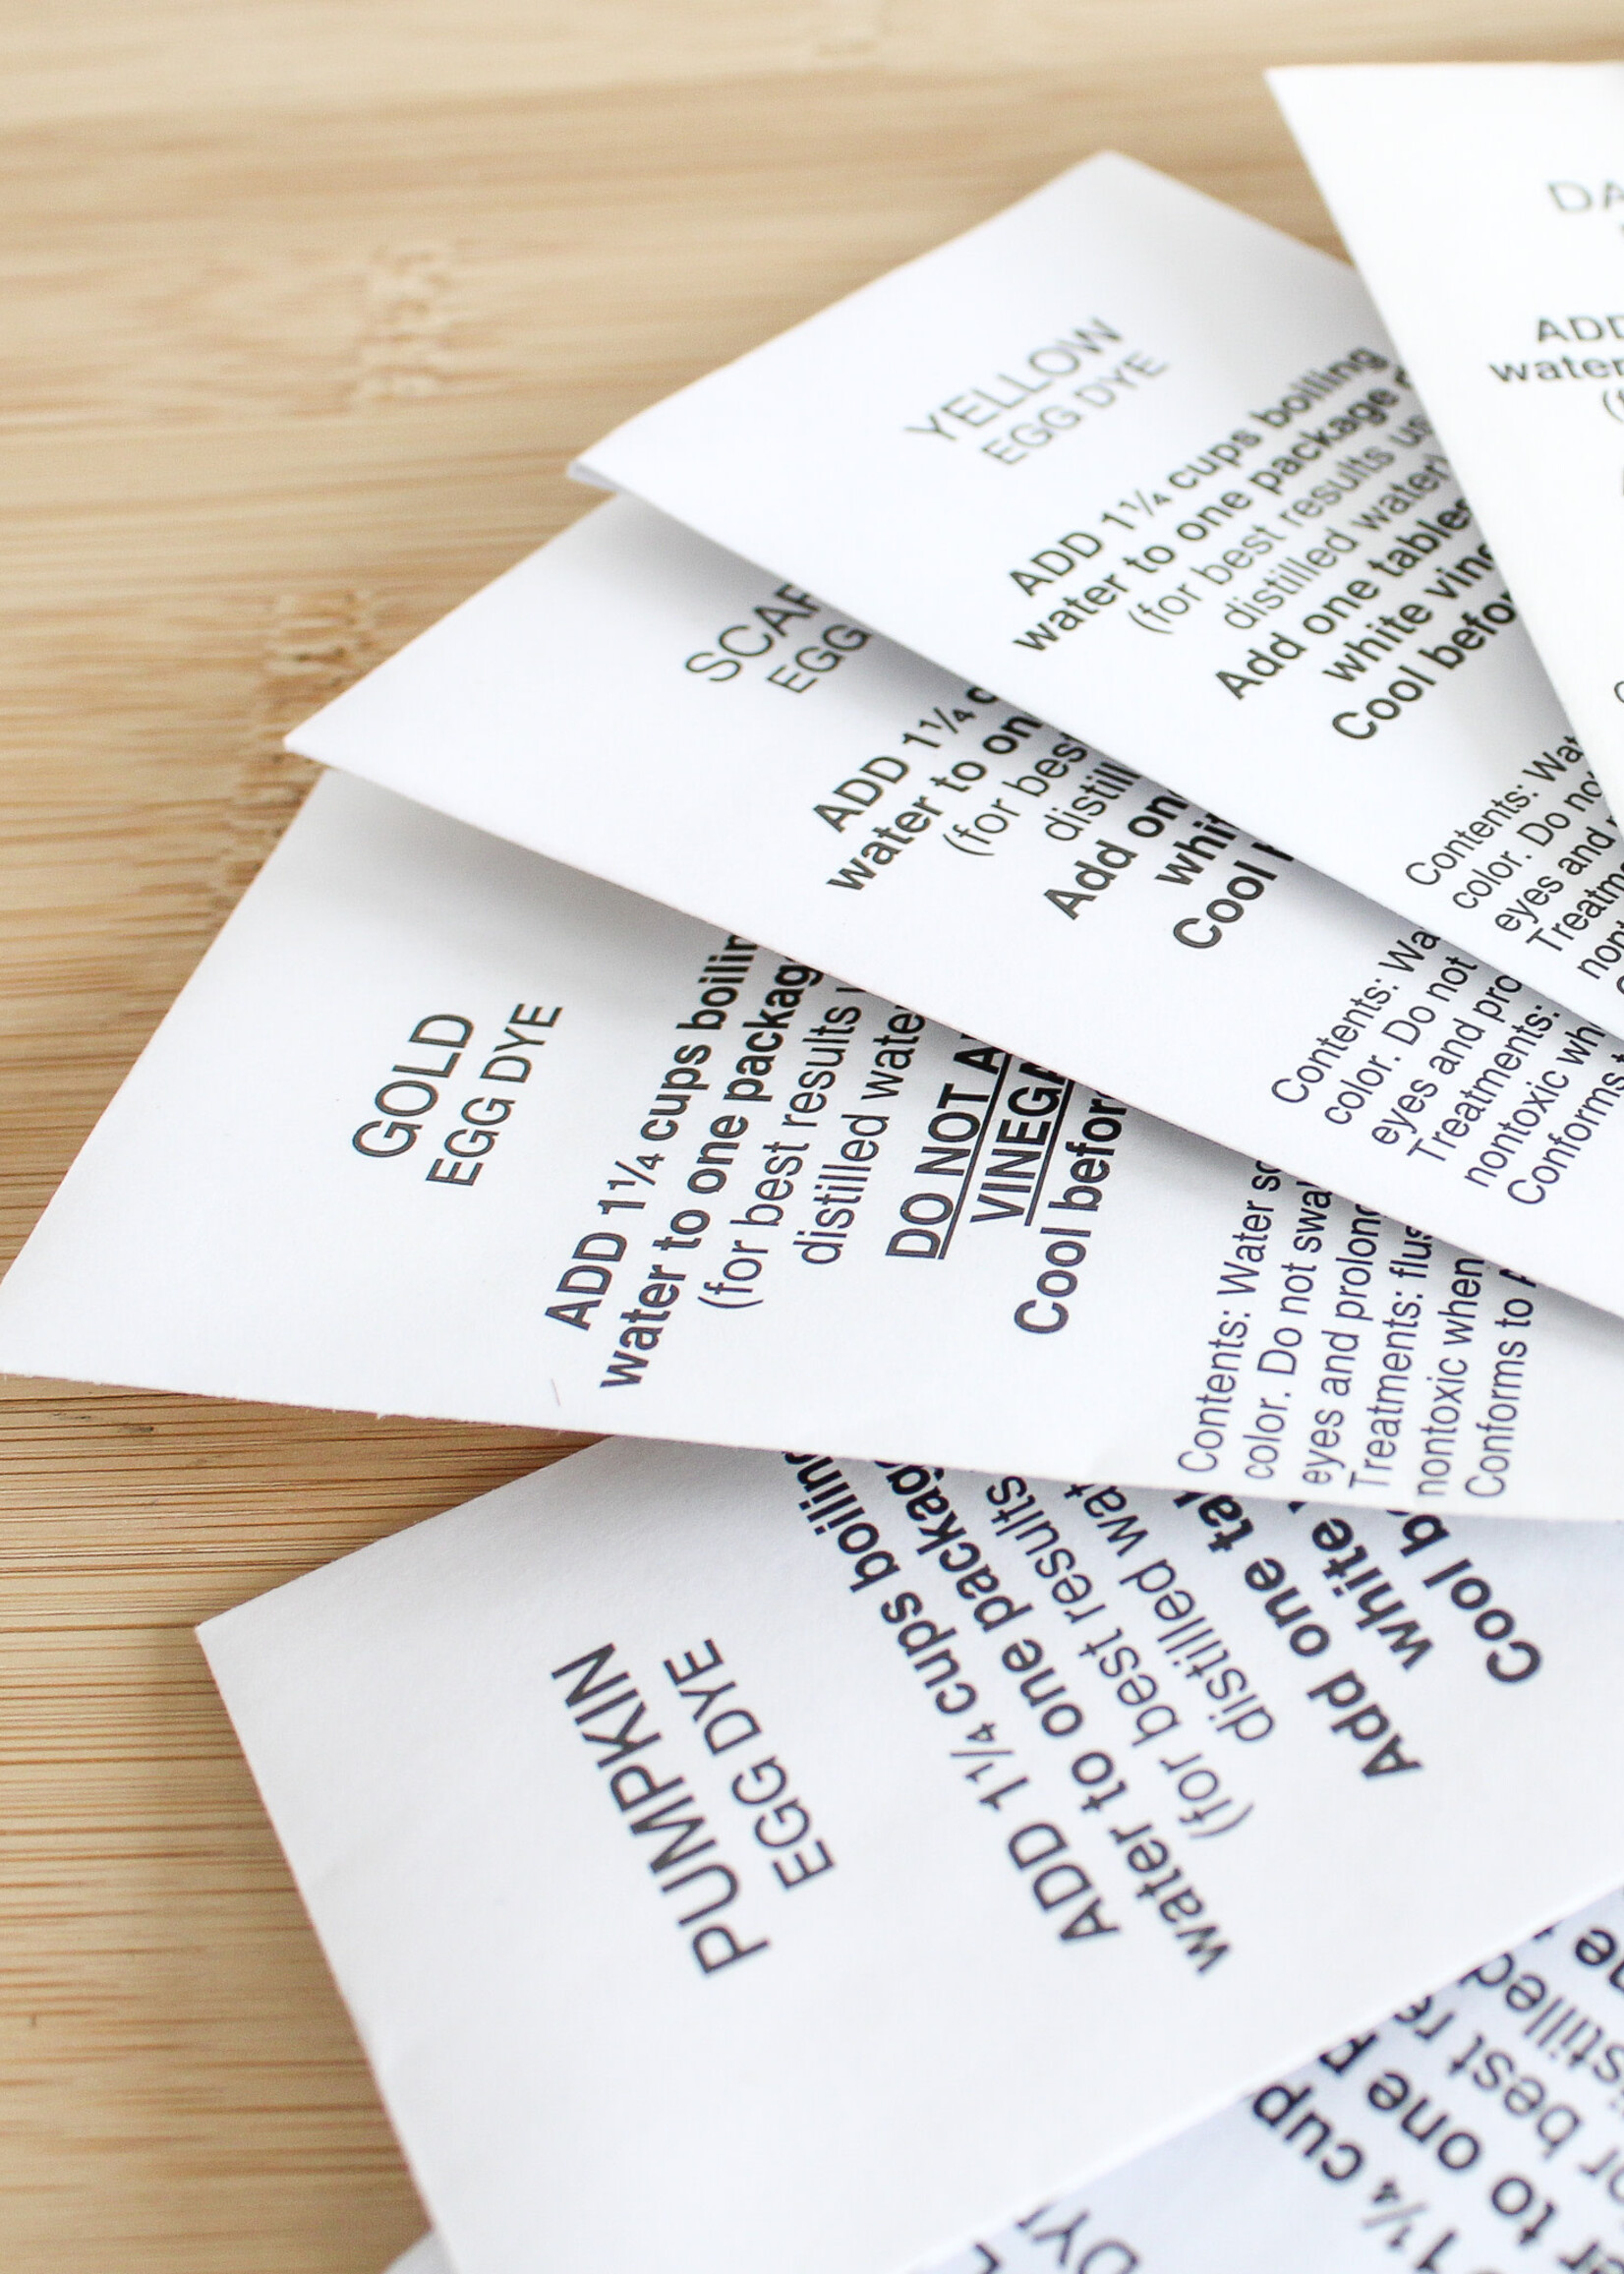 DA
ADD
water
YELLOW
EGG DYE
ADD 1¼ cups boiling
water to one package
(for best results us
distilled water)
Add one tables
white vine
Cool befor
Contents: Wat
color. Do not
eyes and
Treatm
nont
SCAR
EGG
ADD 1¼ c
water to on
(for best
distill
Add on
whit
Cool
Contents: Wa
color. Do not
eyes and pro
Treatments:
nontoxic wh
Conforms t
GOLD
EGG DYE
ADD 1¼ cups boilin
water to one packag
(for best results
distilled wate
DO NOT A
VINEGA
Cool befor
Contents: Water so
color. Do not swal
eyes and prolong
Treatments: flus
nontoxic when
Conforms to A
PUMPKIN
EGG DYE
ADD 1¼ cups boiling
water to one packag
(for best results
distilled wat
Add one tal
white
Cool b
DY
1¼ cup
er to one p
or best re
istilled
ne